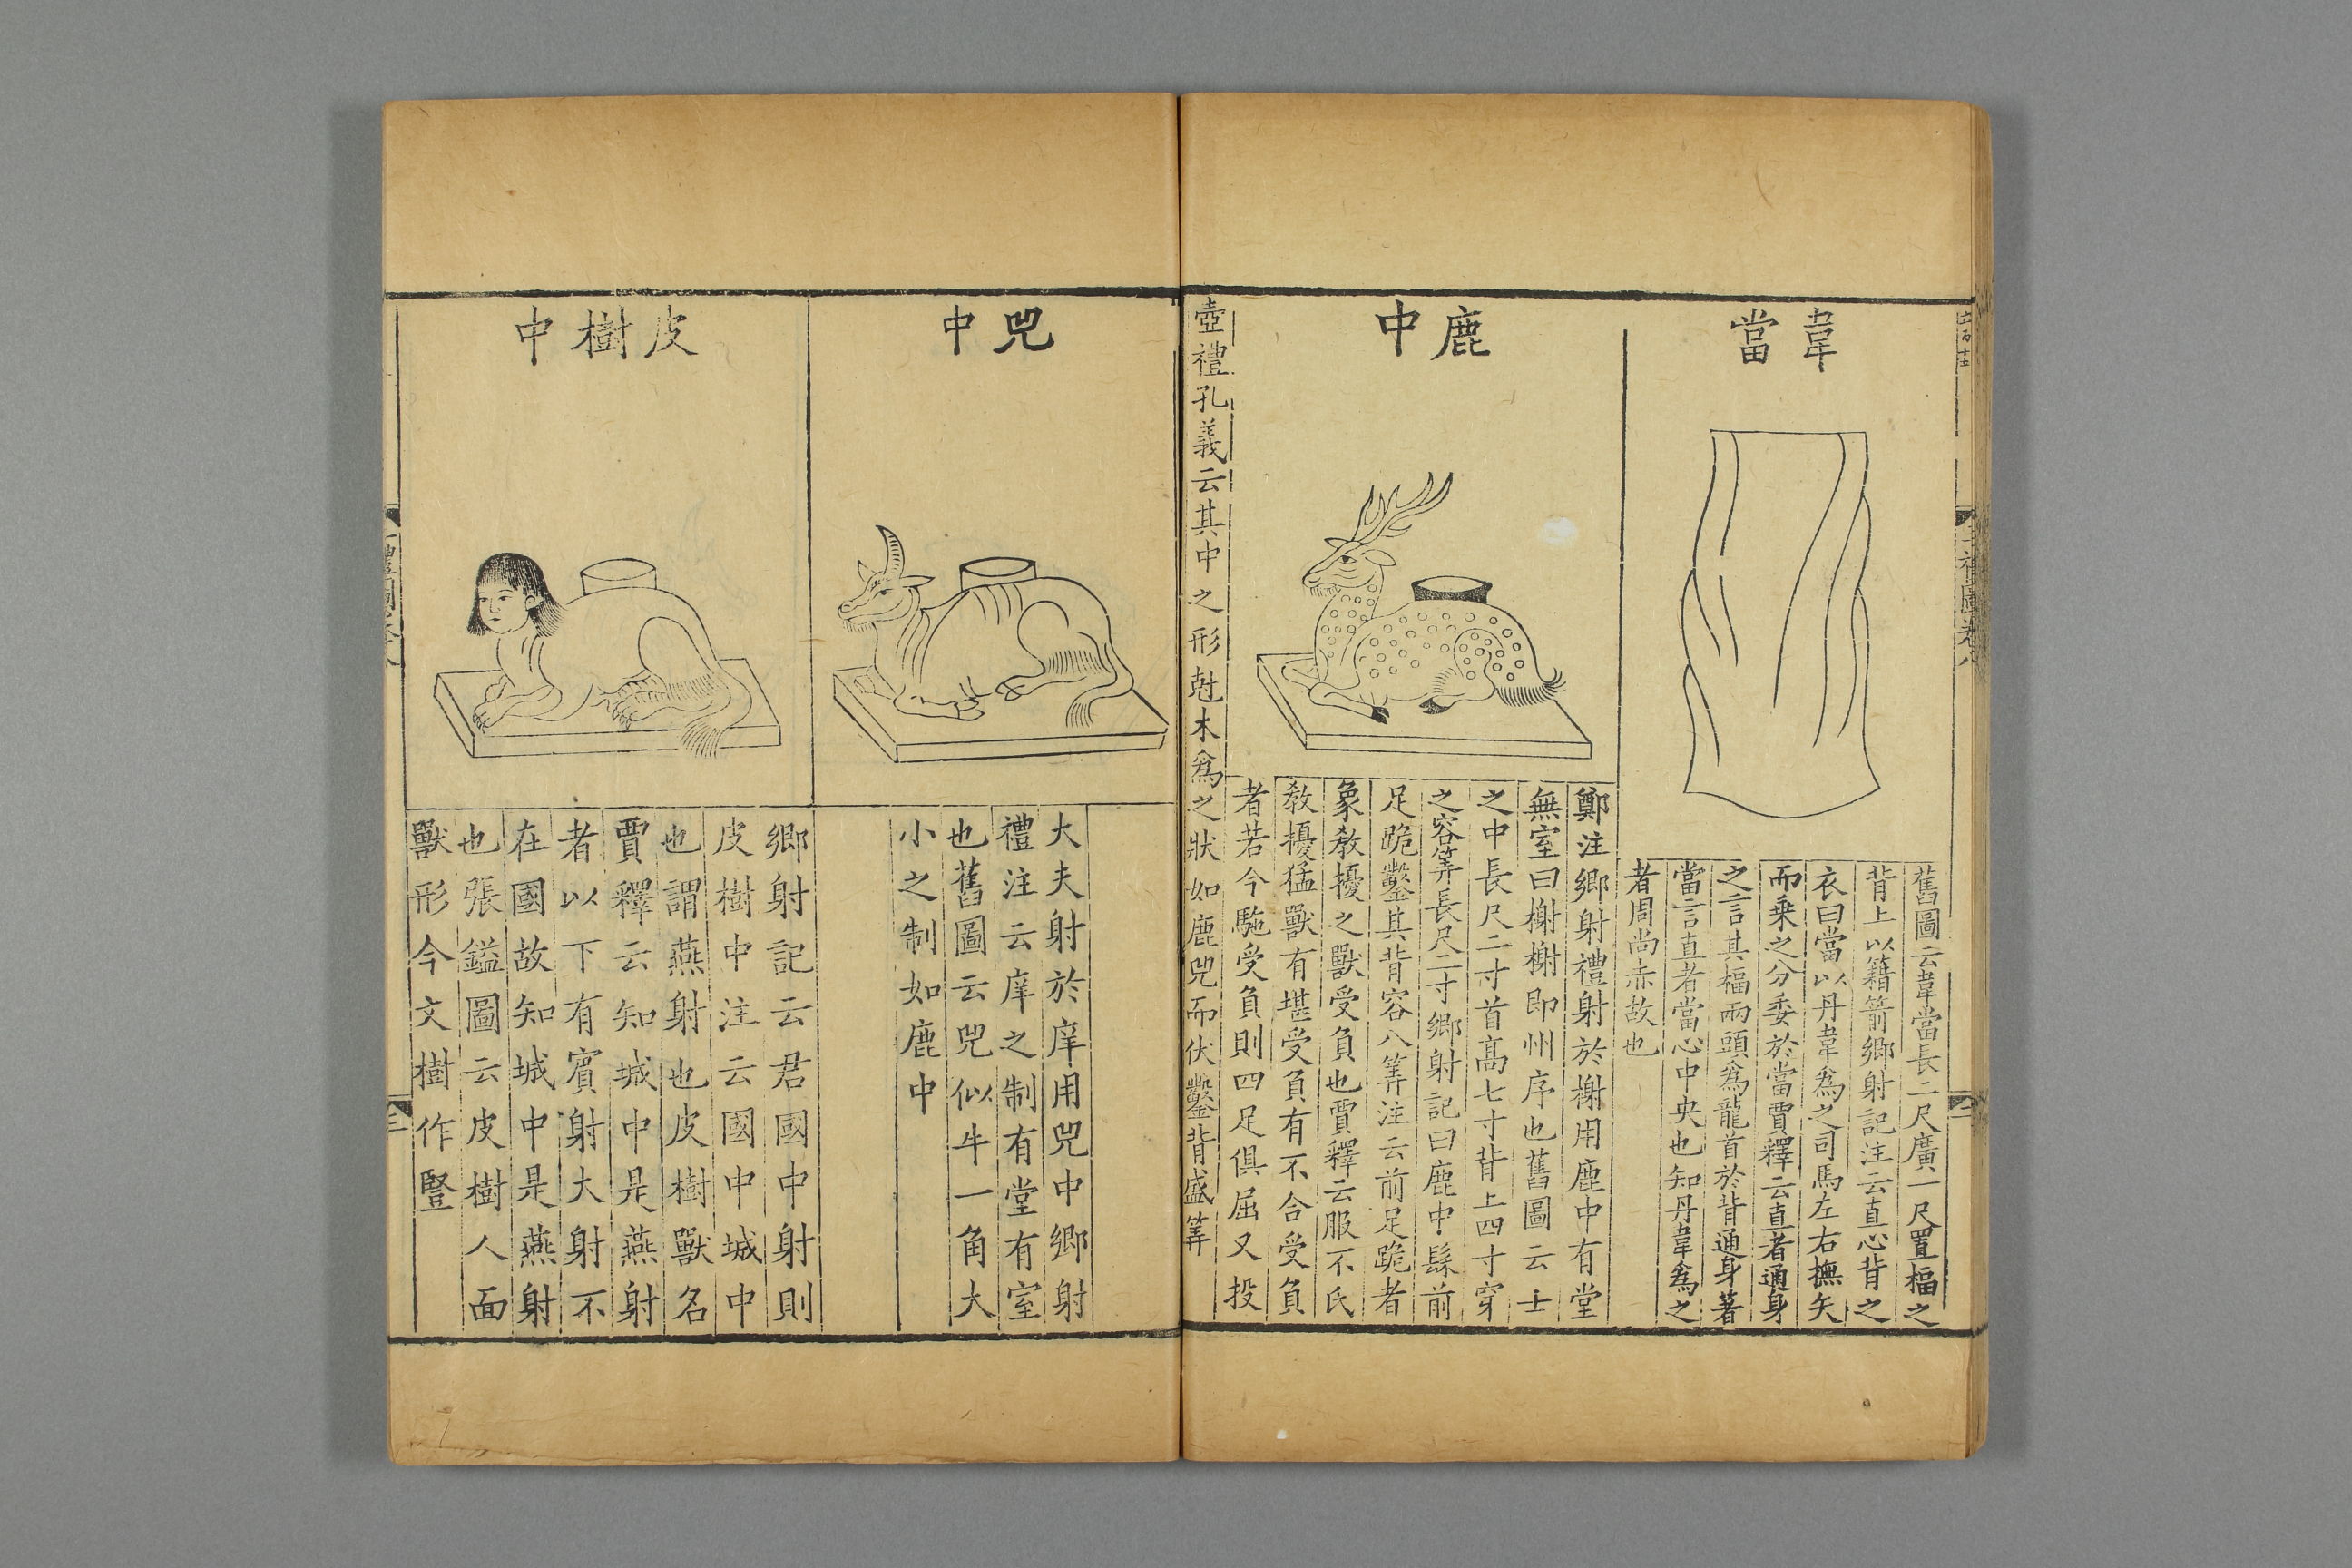 韋當
舊圖云韋當長二尺廣一尺置楅之
背上以籍箭鄉射記注云直心背之
衣曰當以丹韋為之司馬左右撫矢
而乗之分委於當賈釋云直者通身
之言其楅兩頭為龍首於背通身著
當言直者當心中央也知丹韋為之
者周尚赤故也
鹿中
鄭注鄉射禮射於榭用鹿中有堂
無室曰榭榭即州序也舊圖云士
之中長尺二寸首髙七寸背上四寸穿
之容筭長尺二寸鄉射記曰鹿中髹前
足跪鑿其背容八筭注云前足跪者
象教擾之獸受負也賈釋云服不氏
教擾猛獸有堪受負有不合受負
者若今駞受負則四足俱屈又投
壺禮孔義云其中之形尅木為之狀如鹿兕而伏鑿背盛筭
兕中
大夫射於庠用兕中鄉射
禮注云庠之制有堂有室
也舊圖云兕似牛一角大
小之制如鹿中
皮樹中
鄉射記云君國中射則
皮樹中注云國中城中
也謂燕射也皮樹獸名
賈釋云知城中是燕射
者以下有賓射大射不
在國故知城中是燕射
也張鎰圖云皮樹人面
獸形今文樹作豎
禮圖卷八
三
禮圖卷八
二